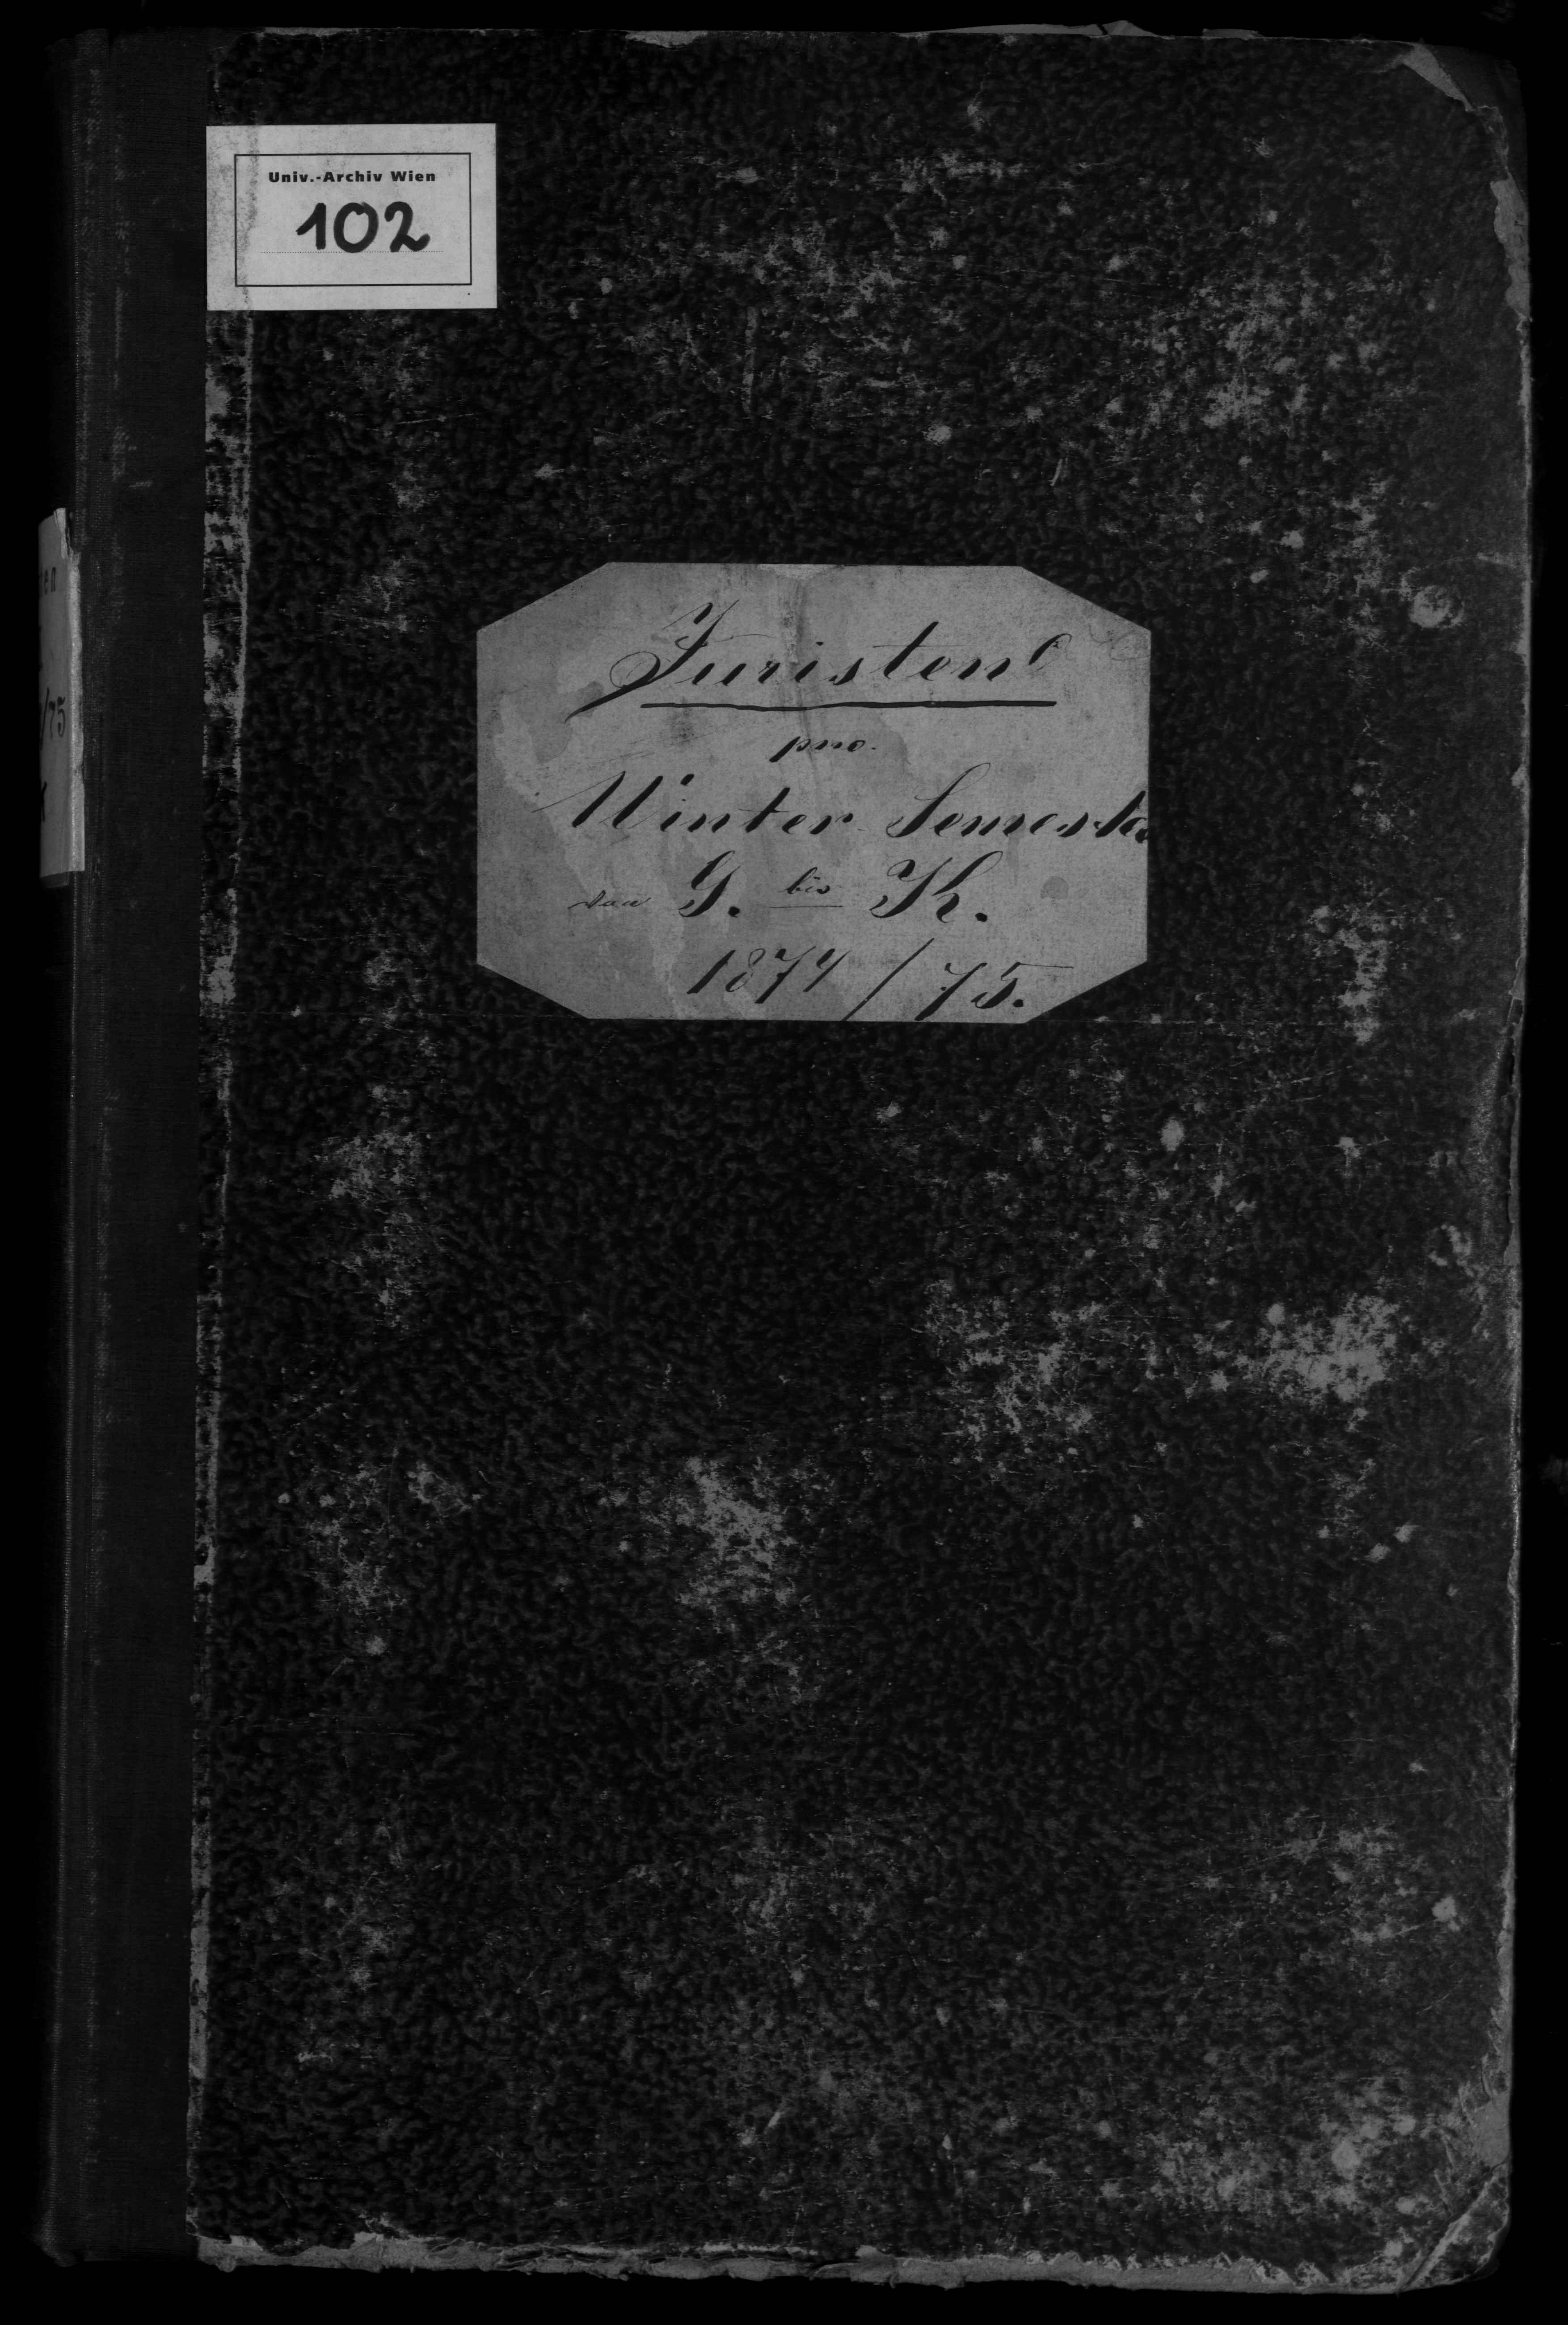 Univ.-Archiv Wien
102
Juristen
pro.
Winter Semester
von G. bis K.
1874/75.
en
/75
K